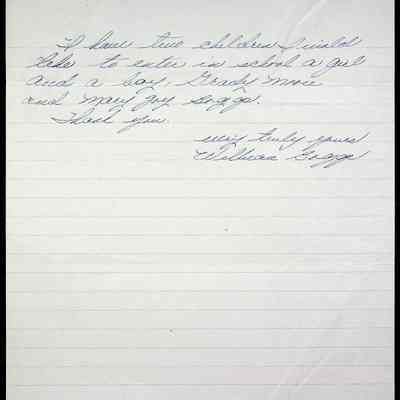 I have two children I would
like to enter in school a girl
and a boy. Grady Moore
and Mary Joy Boggs.
Thank you.
very truly yours
William Boggs